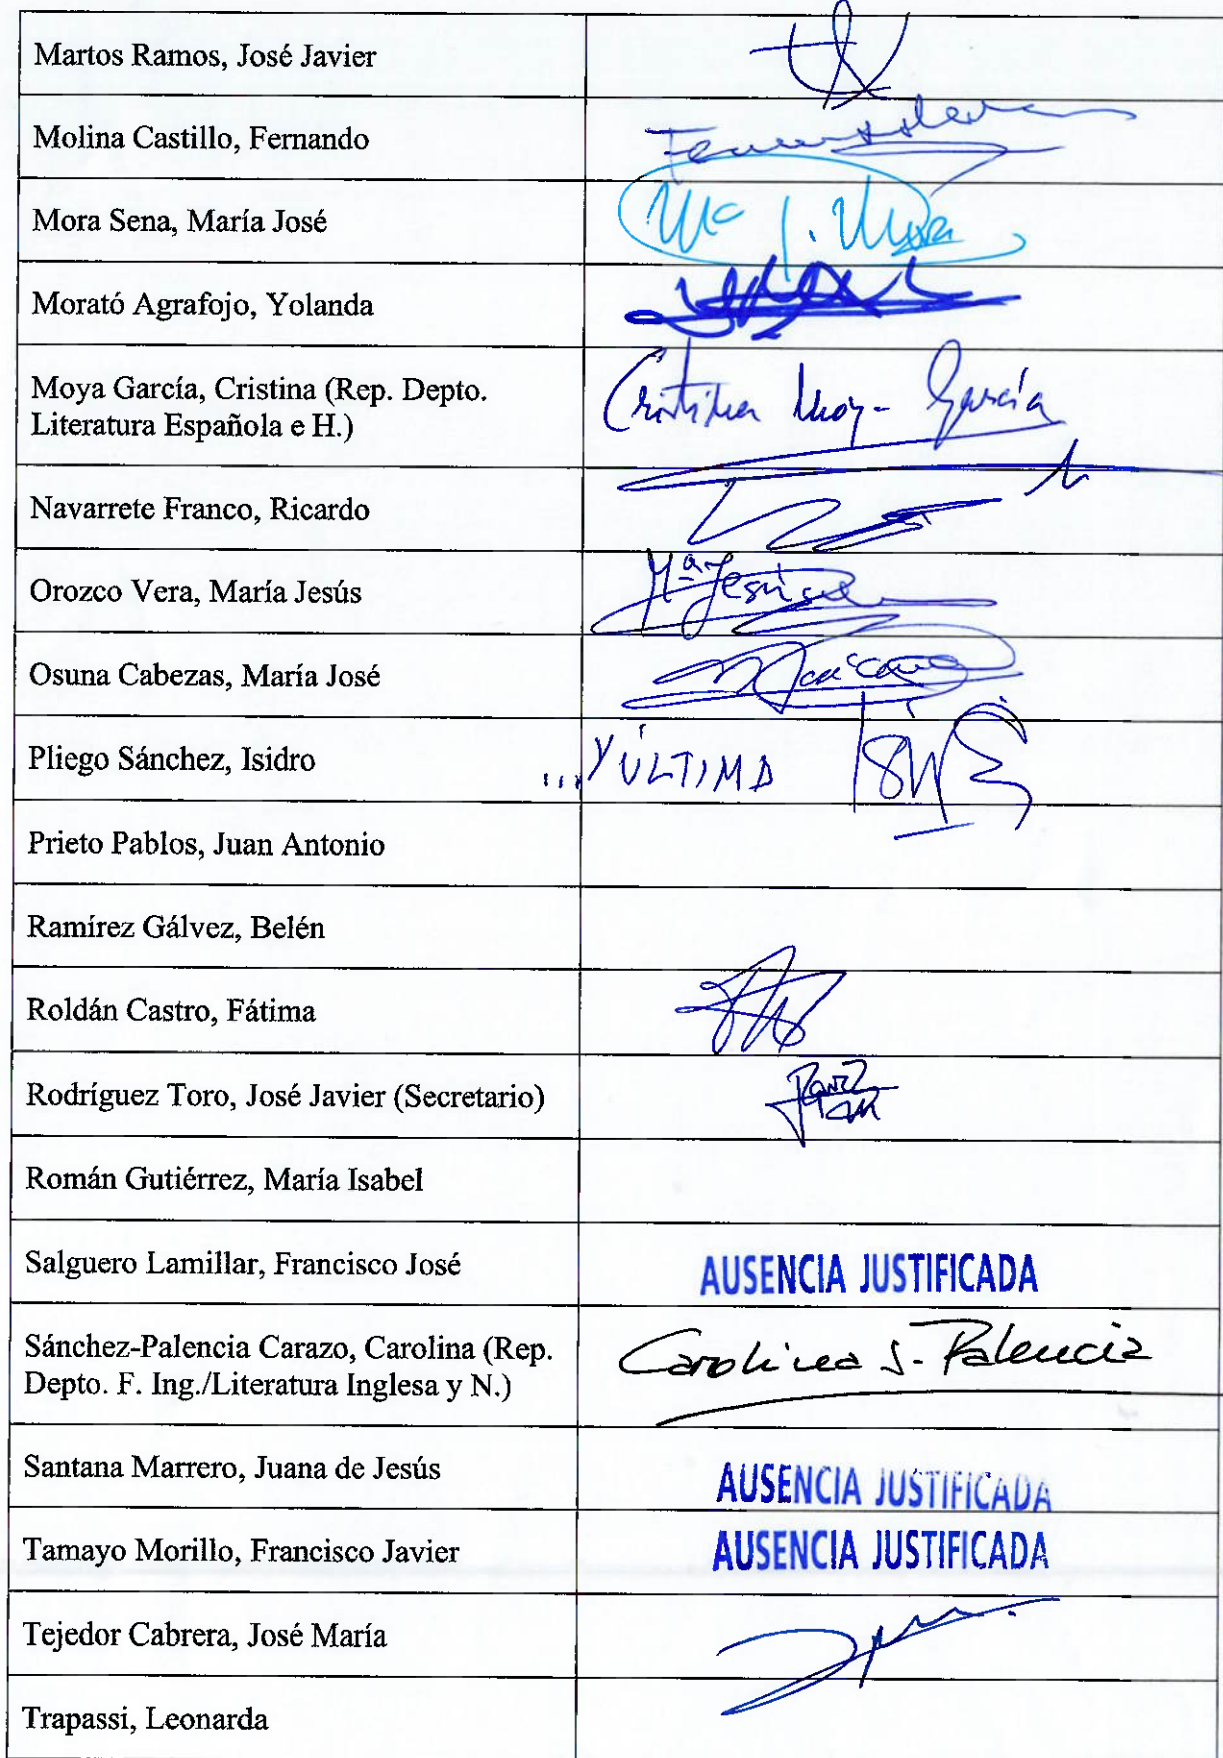 Martos Ramos, José Javier
Molina Castillo, Fernando
Mora Sena, María José
Mª J. Mora
Morató Agrafojo, Yolanda
Moya García, Cristina (Rep. Depto.
Literatura Española e H.)
Cristina Moya García
Navarrete Franco, Ricardo
Orozco Vera, María Jesús
Mª Jesús
Osuna Cabezas, María José
Pliego Sánchez, Isidro
... Y ÚLTIMA
Prieto Pablos, Juan Antonio
Ramírez Gálvez, Belén
Roldán Castro, Fátima
Rodríguez Toro, José Javier (Secretario)
Román Gutiérrez, María Isabel
Salguero Lamillar, Francisco José
AUSENCIA JUSTIFICADA
Sánchez-Palencia Carazo, Carolina (Rep.
Depto. F. Ing./Literatura Inglesa y N.)
Carolina S-Palencia
Santana Marrero, Juana de Jesús
AUSENCIA JUSTIFICADA
Tamayo Morillo, Francisco Javier
AUSENCIA JUSTIFICADA
Tejedor Cabrera, José María
Trapassi, Leonarda